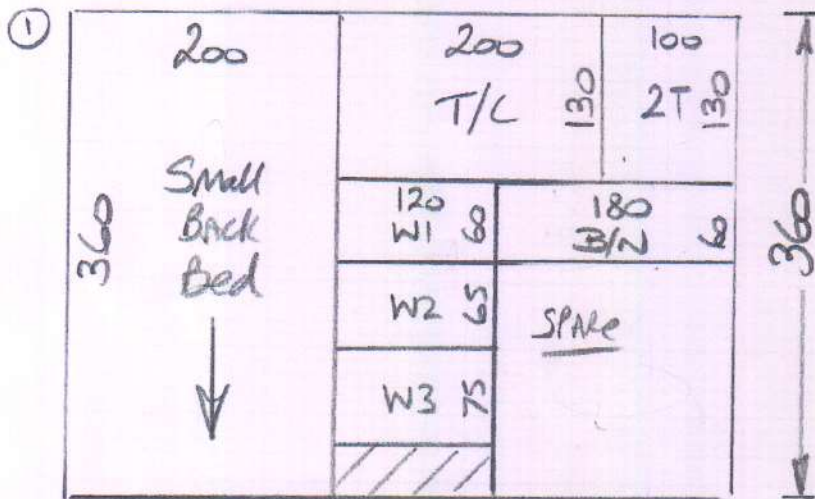 ①
200
360
Small
Back
Bed
200
T/C
130
100
2T
130
120
W1
60
180
B/N
60
W2
65
W3
75
SPARE
360